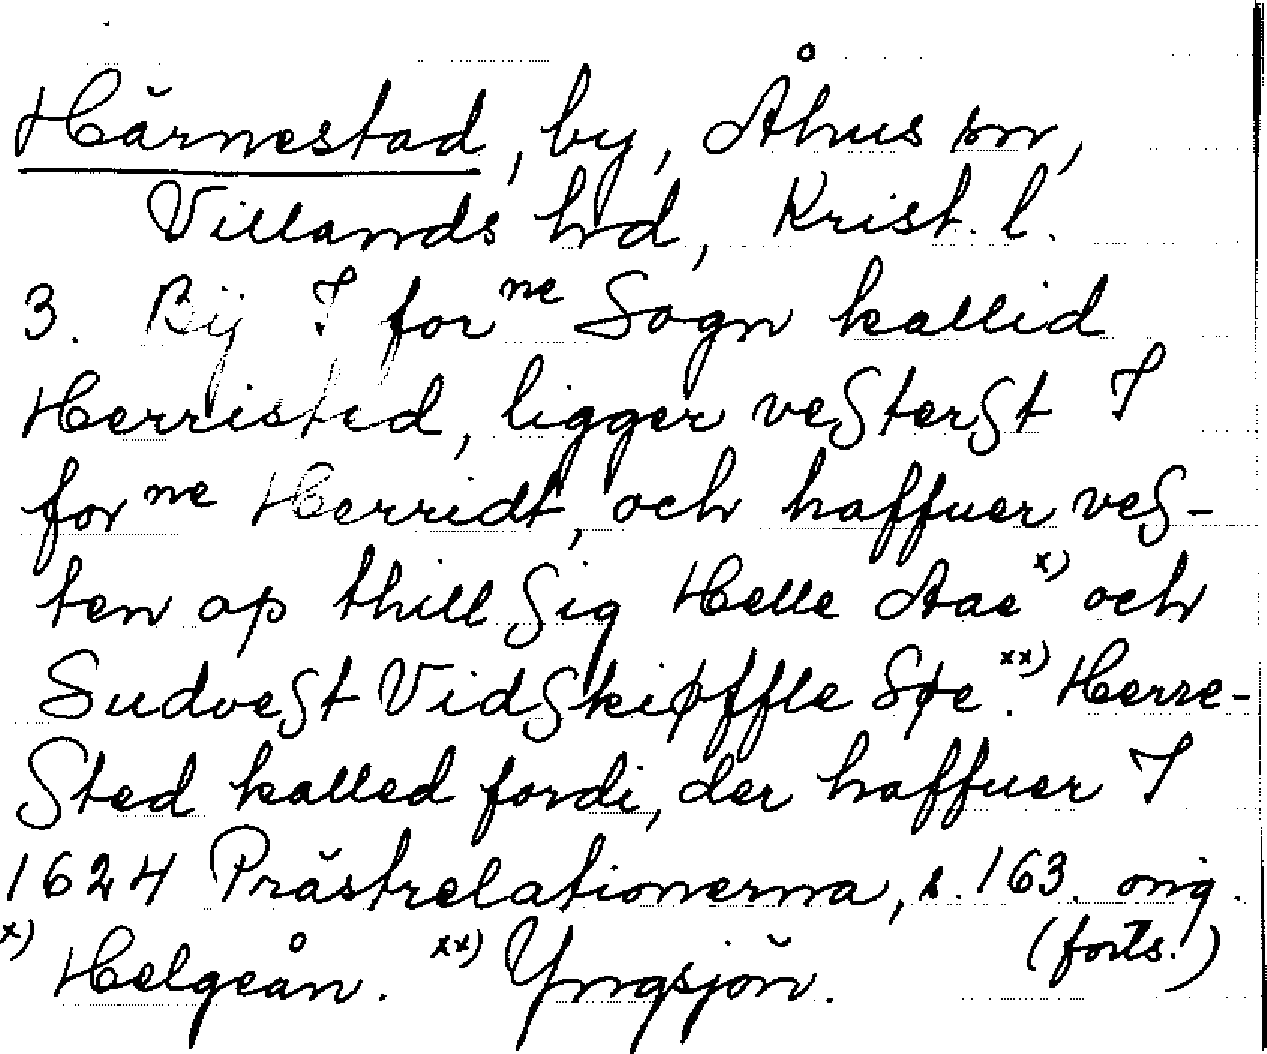 Härnestad, by, Åhus sn,
Villands hd, Krist. l.
3. Bij I forne Sogn kallid
Herristed, ligger vesterst I
forne Herridt, och haffuer ves-
ten op thill sig Helle Aae x) och
Sudvest Vidskipffle Søe. xx) Herre-
sted kalled fordi, der haffuer I
1624 Prästrelationerna, s. 163. orig.
(forts.)
x) Helgeån. xx) Yngsjön.